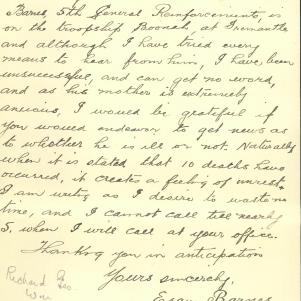 Barnes, 5th General Reinforcements, is
on the troopship Boonah, at Fremantle
and although I have tried every
means to hear from him, I have been
unsuccessful, and can get no word,
and as his mother is extremely
anxious, I would be grateful if
you would endeavor to get news as
to whether he is ill or not. Naturally
when it is stated that 10 deaths have
occurred, it creates a feeling of unrest.
I am writing as I desire to waste no
time, and I cannot call till nearly
5, when I will call at your office.
Thanking you in anticipation
Yours sincerely,
Barnes
Richard Geo.